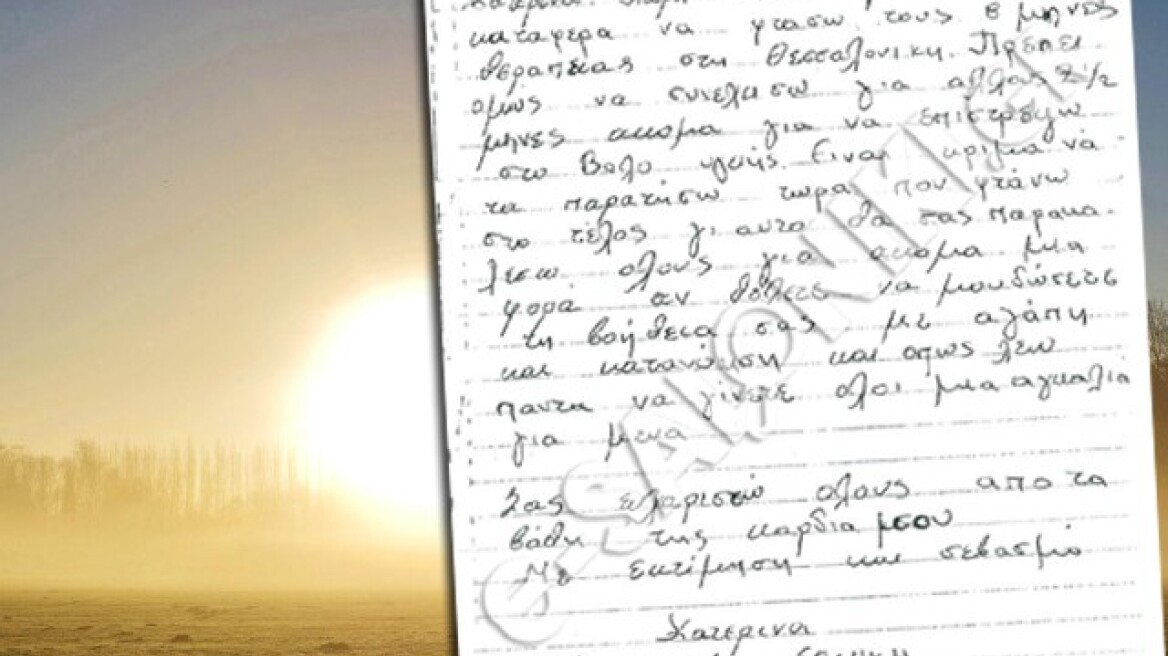 καταφερα να φτασω τους 8 μηνες
θεραπειας στη Θεσσαλονικη. Πρεπει
ομως να συνεχισω για αλλους 2 1/2
μηνες ακομα για να επιστρεψω
στο Βολο υγιής. Ειναι κριμα να
τα παρατήσω τωρα που φτάνω
στο τέλος γι αυτο θα σας παρακα-
λεσω ολους για ακομα μια
φορα αν θέλετε να μου δώσετε
τη βοήθεια σας με αγάπη
και κατανόηση και οπως λεω
παντα να γίνετε ολοι μια αγκαλια
για μενα
Σας ευχαριστώ ολους απο τα
βάθη της καρδιά μσου
Με εκτίμηση και σεβασμό
Κατερινα